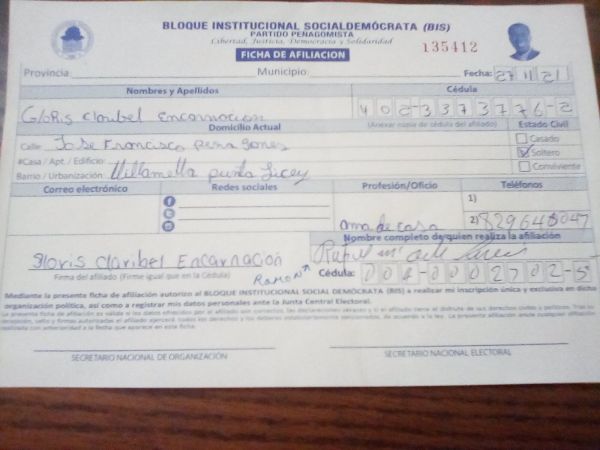 BLOQUE INSTITUCIONAL SOCIALDEMÓCRATA (BIS)
PARTIDO PEÑAGOMISTA
Libertad, Justicia, Democracia y Solidaridad
FICHA DE AFILIACION
135412
Provincia: Municipio: Fecha: 27 11 21
Nombres y Apellidos Cédula
Gloris Claribel Encarnacion 402-3373776-2
Domicilio Actual (Anexar copia de cédula del afiliado) Estado Civil
Calle: Jose Francisco pena gomes Casado
#Casa / Apt. / Edificio: Soltero
Barrio / Urbanización: Villamella punta Licey Conviviente
Correo electrónico Redes sociales Profesión/Oficio Teléfonos
1)
ama de casa 2) 8296480047
Nombre completo de quien realiza la afiliación
Gloris Claribel Encarnación
Firma del afiliado (Firme igual que en la Cédula) Ramon Cédula: 001-0002702-5
Mediante la presente ficha de afiliación autorizo al BLOQUE INSTITUCIONAL SOCIAL DEMÓCRATA (BIS) a realizar mi inscripción única y exclusiva en dicha
organización política, así como a registrar mis datos personales ante la Junta Central Electoral.
SECRETARIO NACIONAL DE ORGANIZACIÓN SECRETARIO NACIONAL ELECTORAL